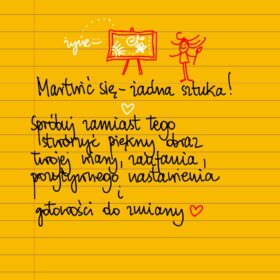 życie :)
Martwić się - żadna sztuka!
Spróbuj zamiast tego
stworzyć piękny obraz
twojej wiary, zaufania,
pozytywnego nastawienia
i
gotowości do zmiany